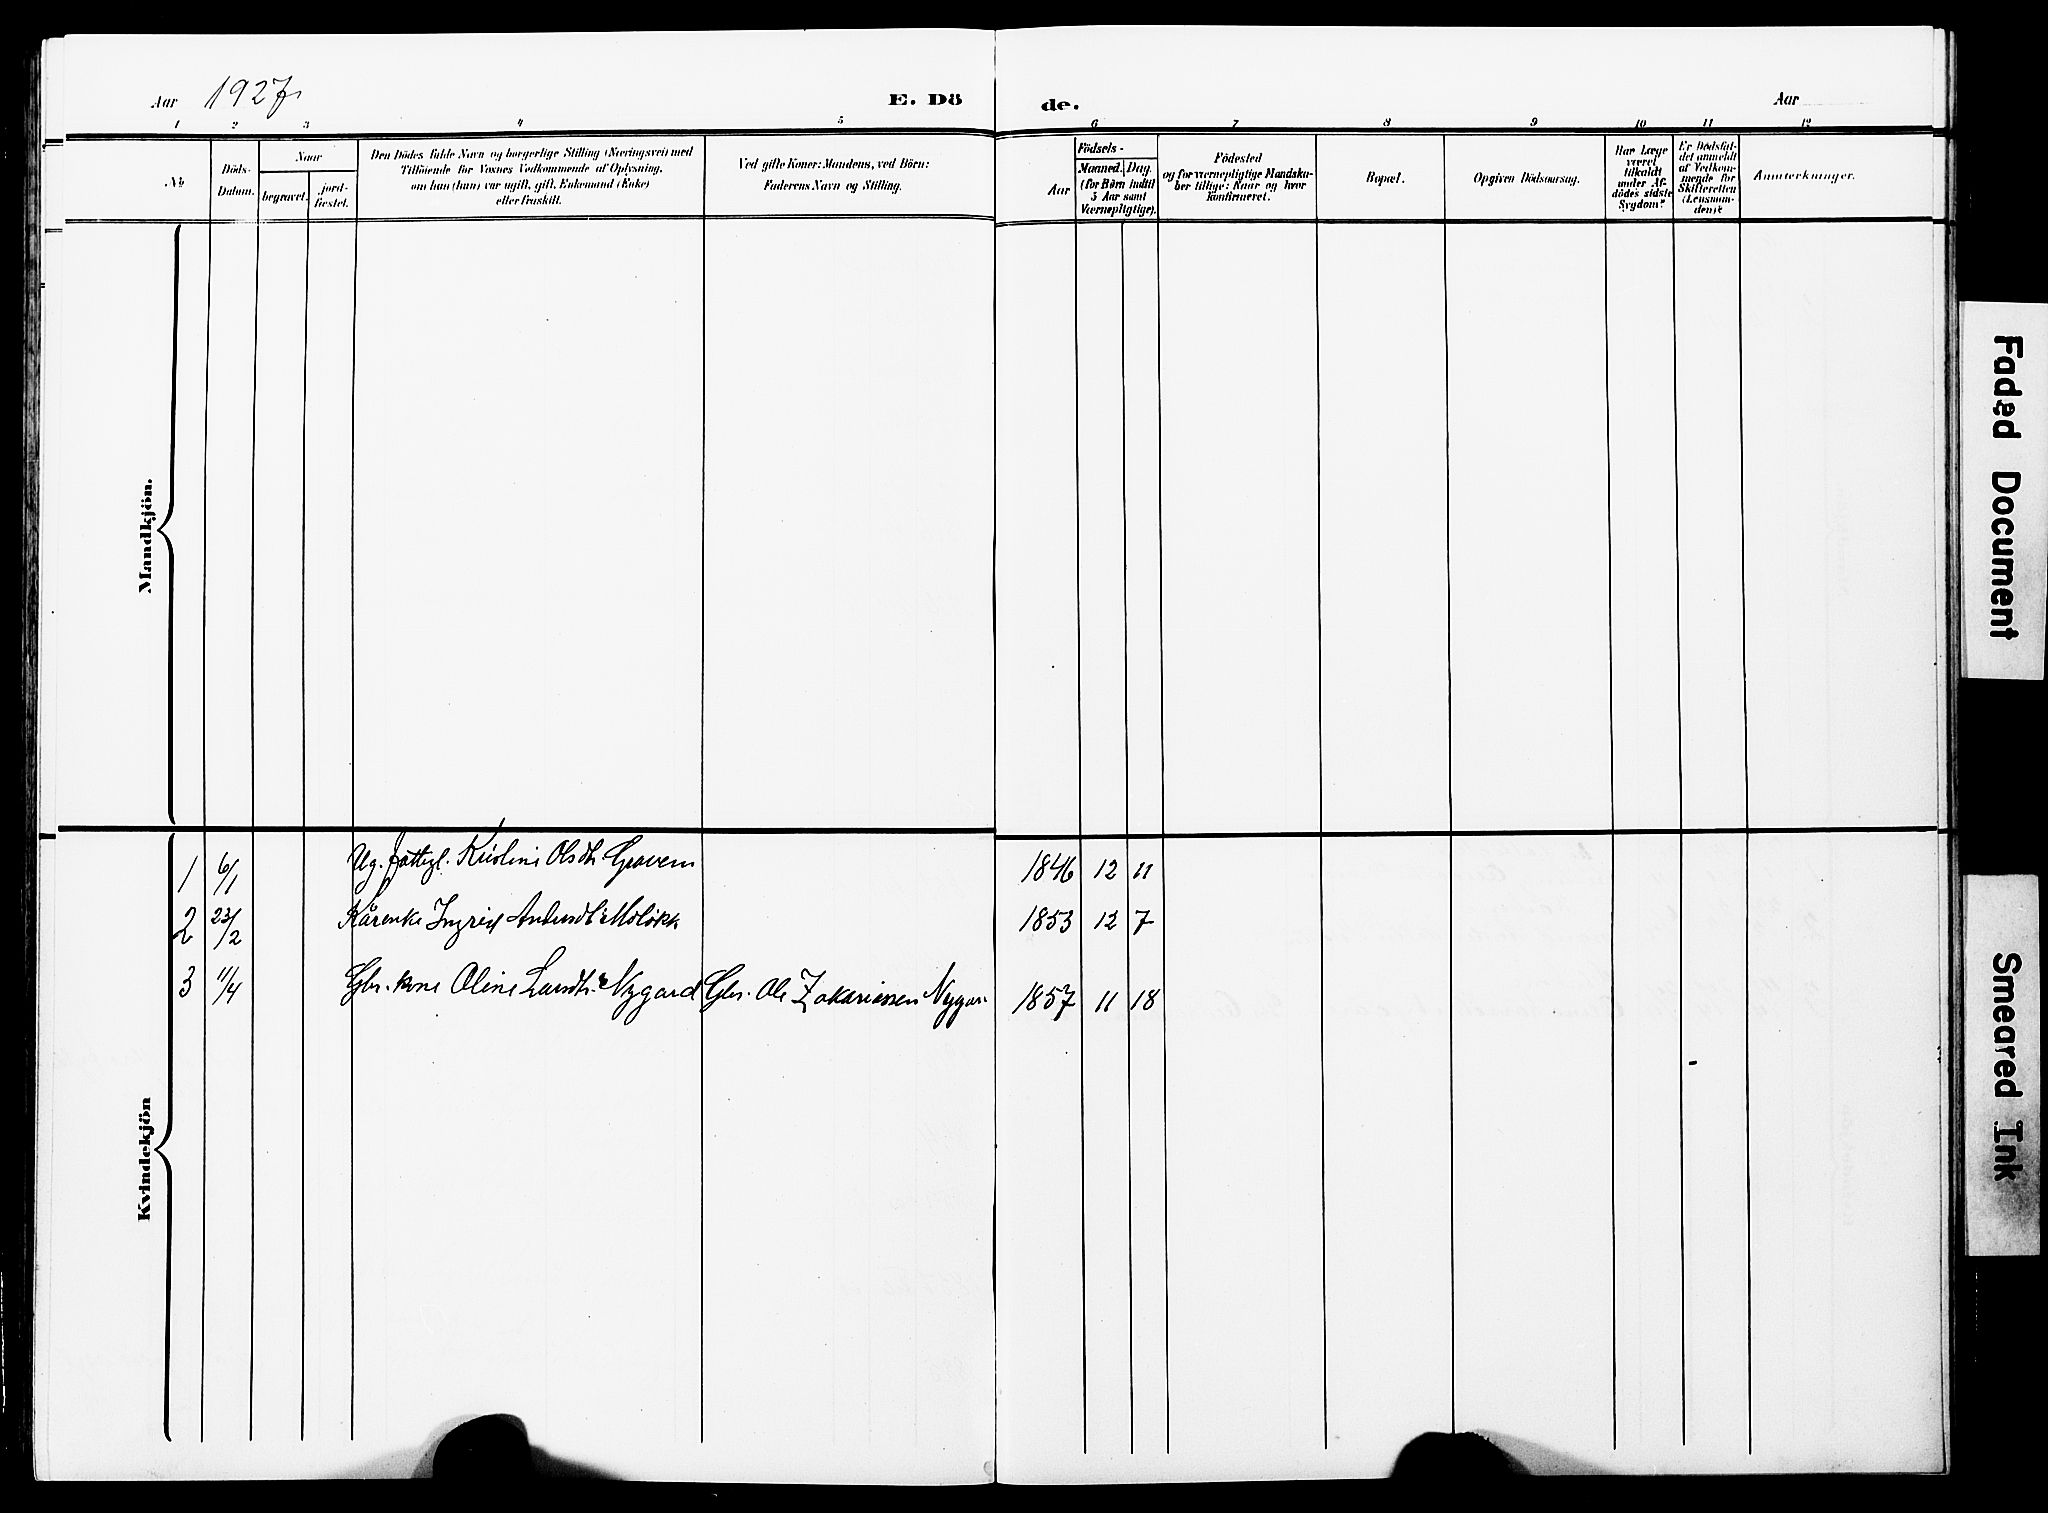 Aar 1927
E. Dö
de.
Aar
1 2 3 4 5
6 7 8 9 10 11 12
No
Döds-
Datum.
Naar
begravet.
jord-
fæstet.
Den Dödes fulde Navn og borgerlige Stilling (Næringsvei) med
Tilföiende for Voxnes Vedkommende af Oplysning,
om han (hun) var ugift, gift, Enkemand (Enke)
eller fraskilt.
Ved gifte Koner: Mandens, ved Börn:
Faderens Navn og Stilling.
Födsels-
Aar
Maaned.
Dag.
(for Börn indtil
5 Aar samt
Værnepligtige).
Födested
og for værnepligtige Mandska-
ber tillige: Naar og hvor
konfirmeret.
Bopæl.
Opgiven Dödsaarsag.
Har Læge
været
tilkaldt
under Af-
dödes sidste
Sygdom?
Er Dödsfal-
det anmeldt
af Vedkom-
mende for
Skifteretten
(Lensman-
den)?
Anmærkninger.
Mandkjön.
Kvindekjön
1 6/1 Ug. fattigl. Kristine Olsdtr. Gravem 1846 12 11
2 23/2 Ingrid 1853 12 7
3 11/4 Gbr. kone Oline Larsdtr. Nygard Gbr. Ole Zakariassen 1857 11 18
Faded Document
Smeared Ink